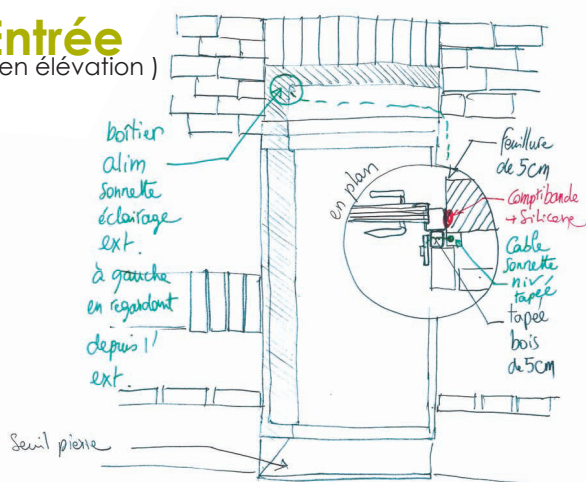 Entrée
en élévation )
boîtier
alim
sonnette
éclairage
ext.
à gauche
en regardant
depuis l'
ext.
Seuil pierre
en plan
feuillure
de 5cm
Compribande
+ Silicone
Cable
sonnette
niv
tapée
tapée
bois
de 5cm